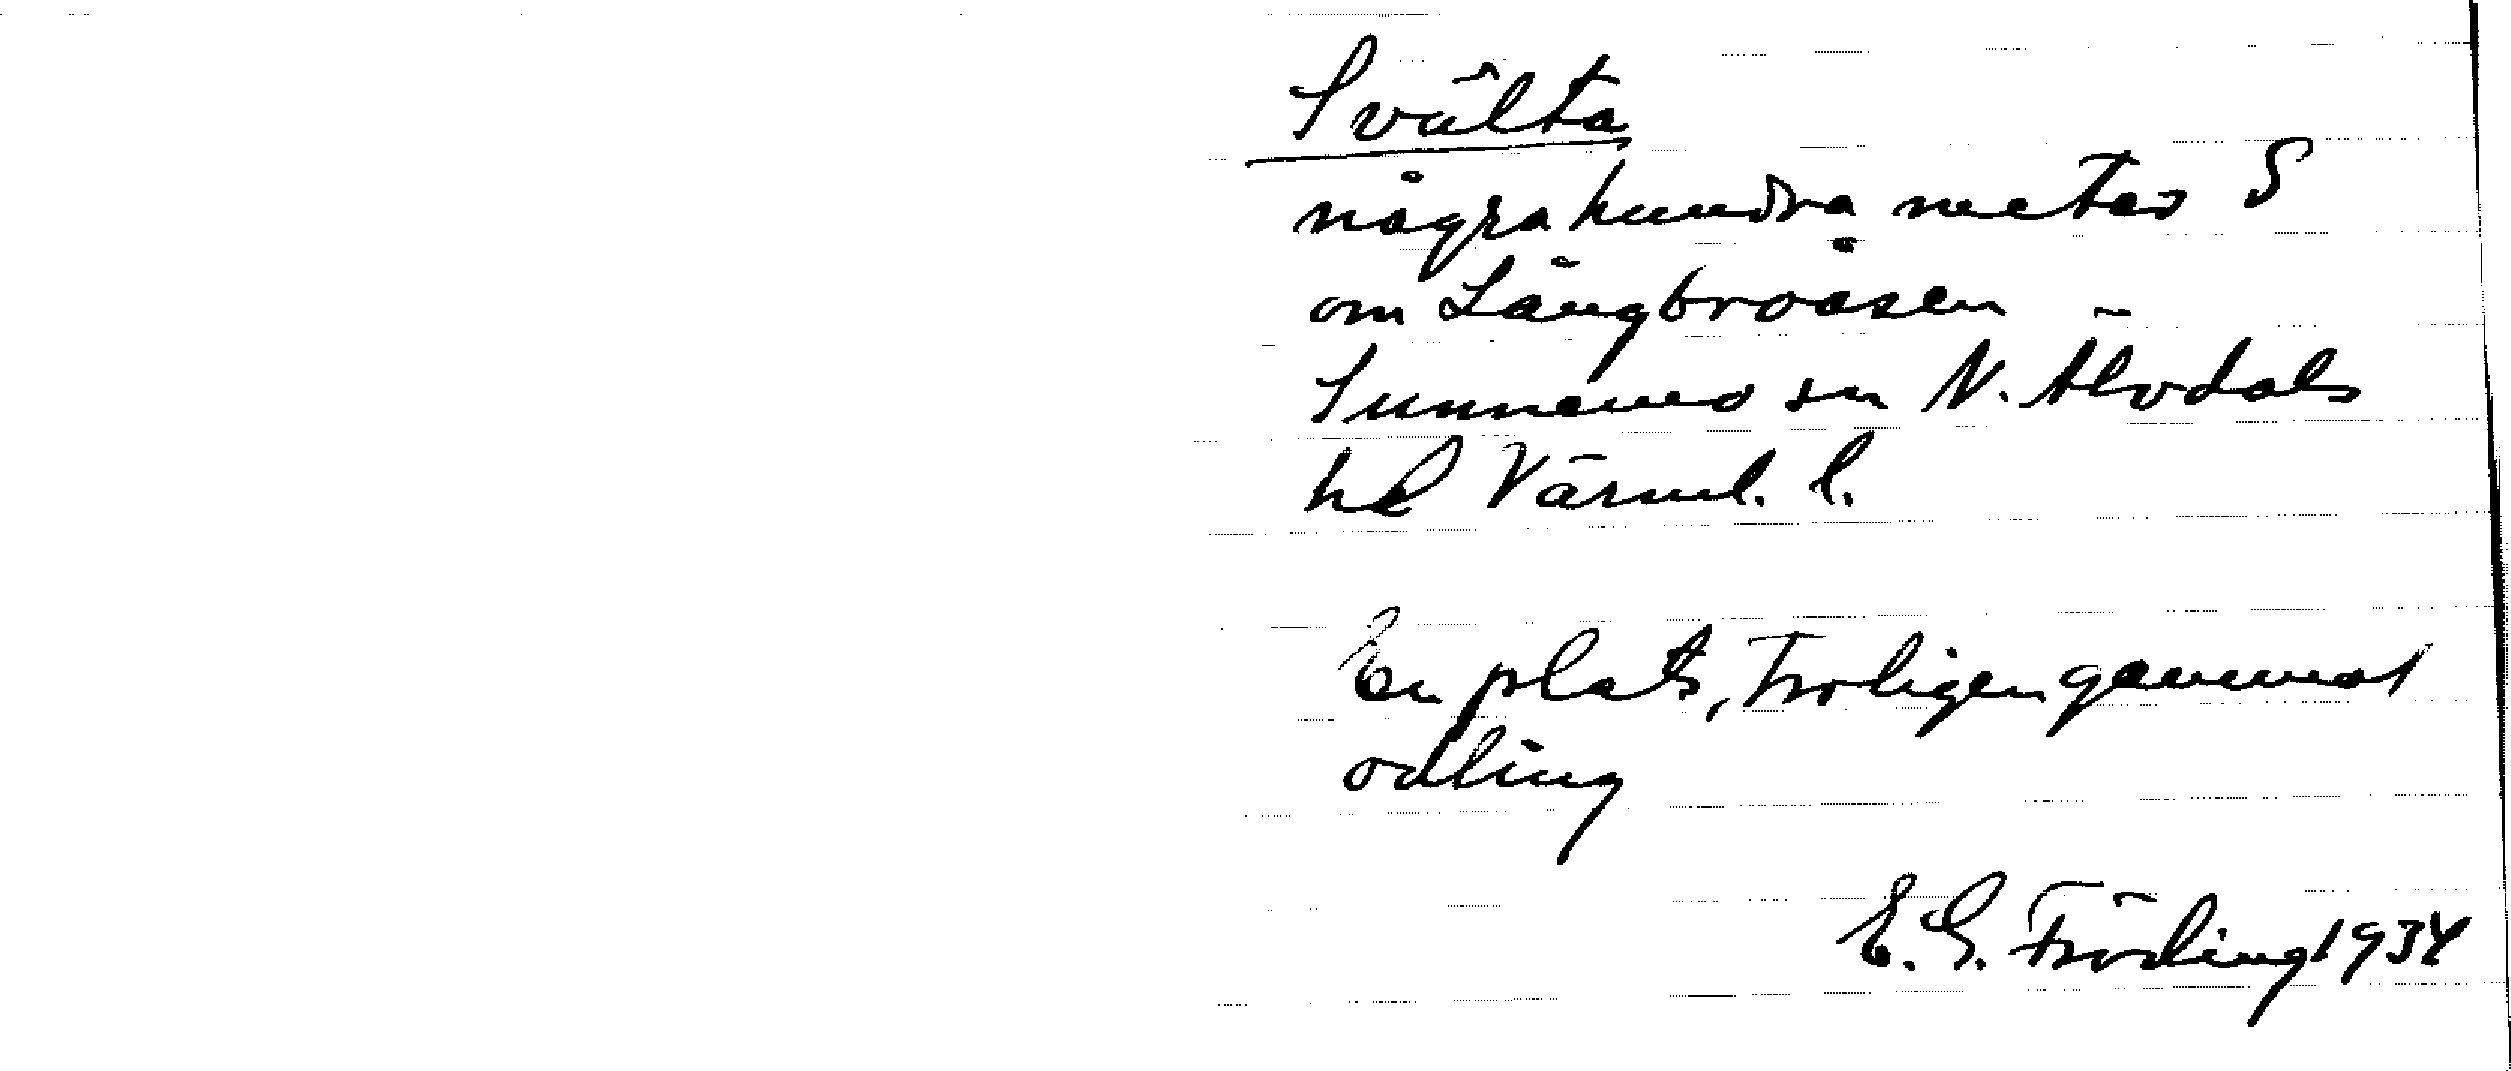 Svälta
några hundra meter S
om Långbroåsen
Sunnemo sn N. Älvdals
hd Värml. l.
En plats, troligen gammal
odling
E. G. Fröding 1934